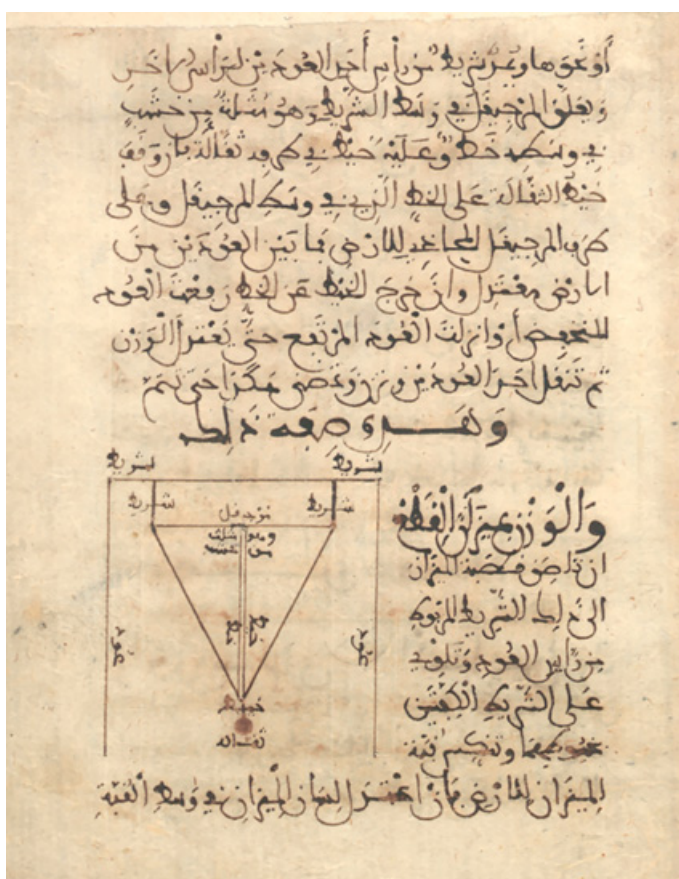 أو نحوها ويمر شريط من رأس أحد العودين لرأس الآخر
ويعلق المرجيقل في وسط الشريط وهو مثلث من خشب
في وسطه خط وعليه خيط في طرفه ثقالة فإن وقف
خيط الثقالة على الخط الذي في وسط المرجيقل وعلى
طرف المرجيقل المحاذي للارض فما بين العودين من
الارض معتدل وان خرج الخيط عن الخط رفعت العود
المنخفض أو انزلت العود المرتفع حتى يعتدل الوزن
ثم تنقل احد العودين وتزن وتمضي هكذا حتى يتم
وهذه صفة ذلك
شريط شريط
شريط شريط
مرجيقل
وهو مثلث
من خشب
خط خيط
عود عود
ثقالة
والوزن بميزان القطن
ان تلصق قصبة الميزان
الى ذلك الشريط المربوط
من رأس العود وتلوي
على الشريط الكفتين
وتنكس قبة
الميزان للارض فان اعتدل لسان الميزان في وسط القبة